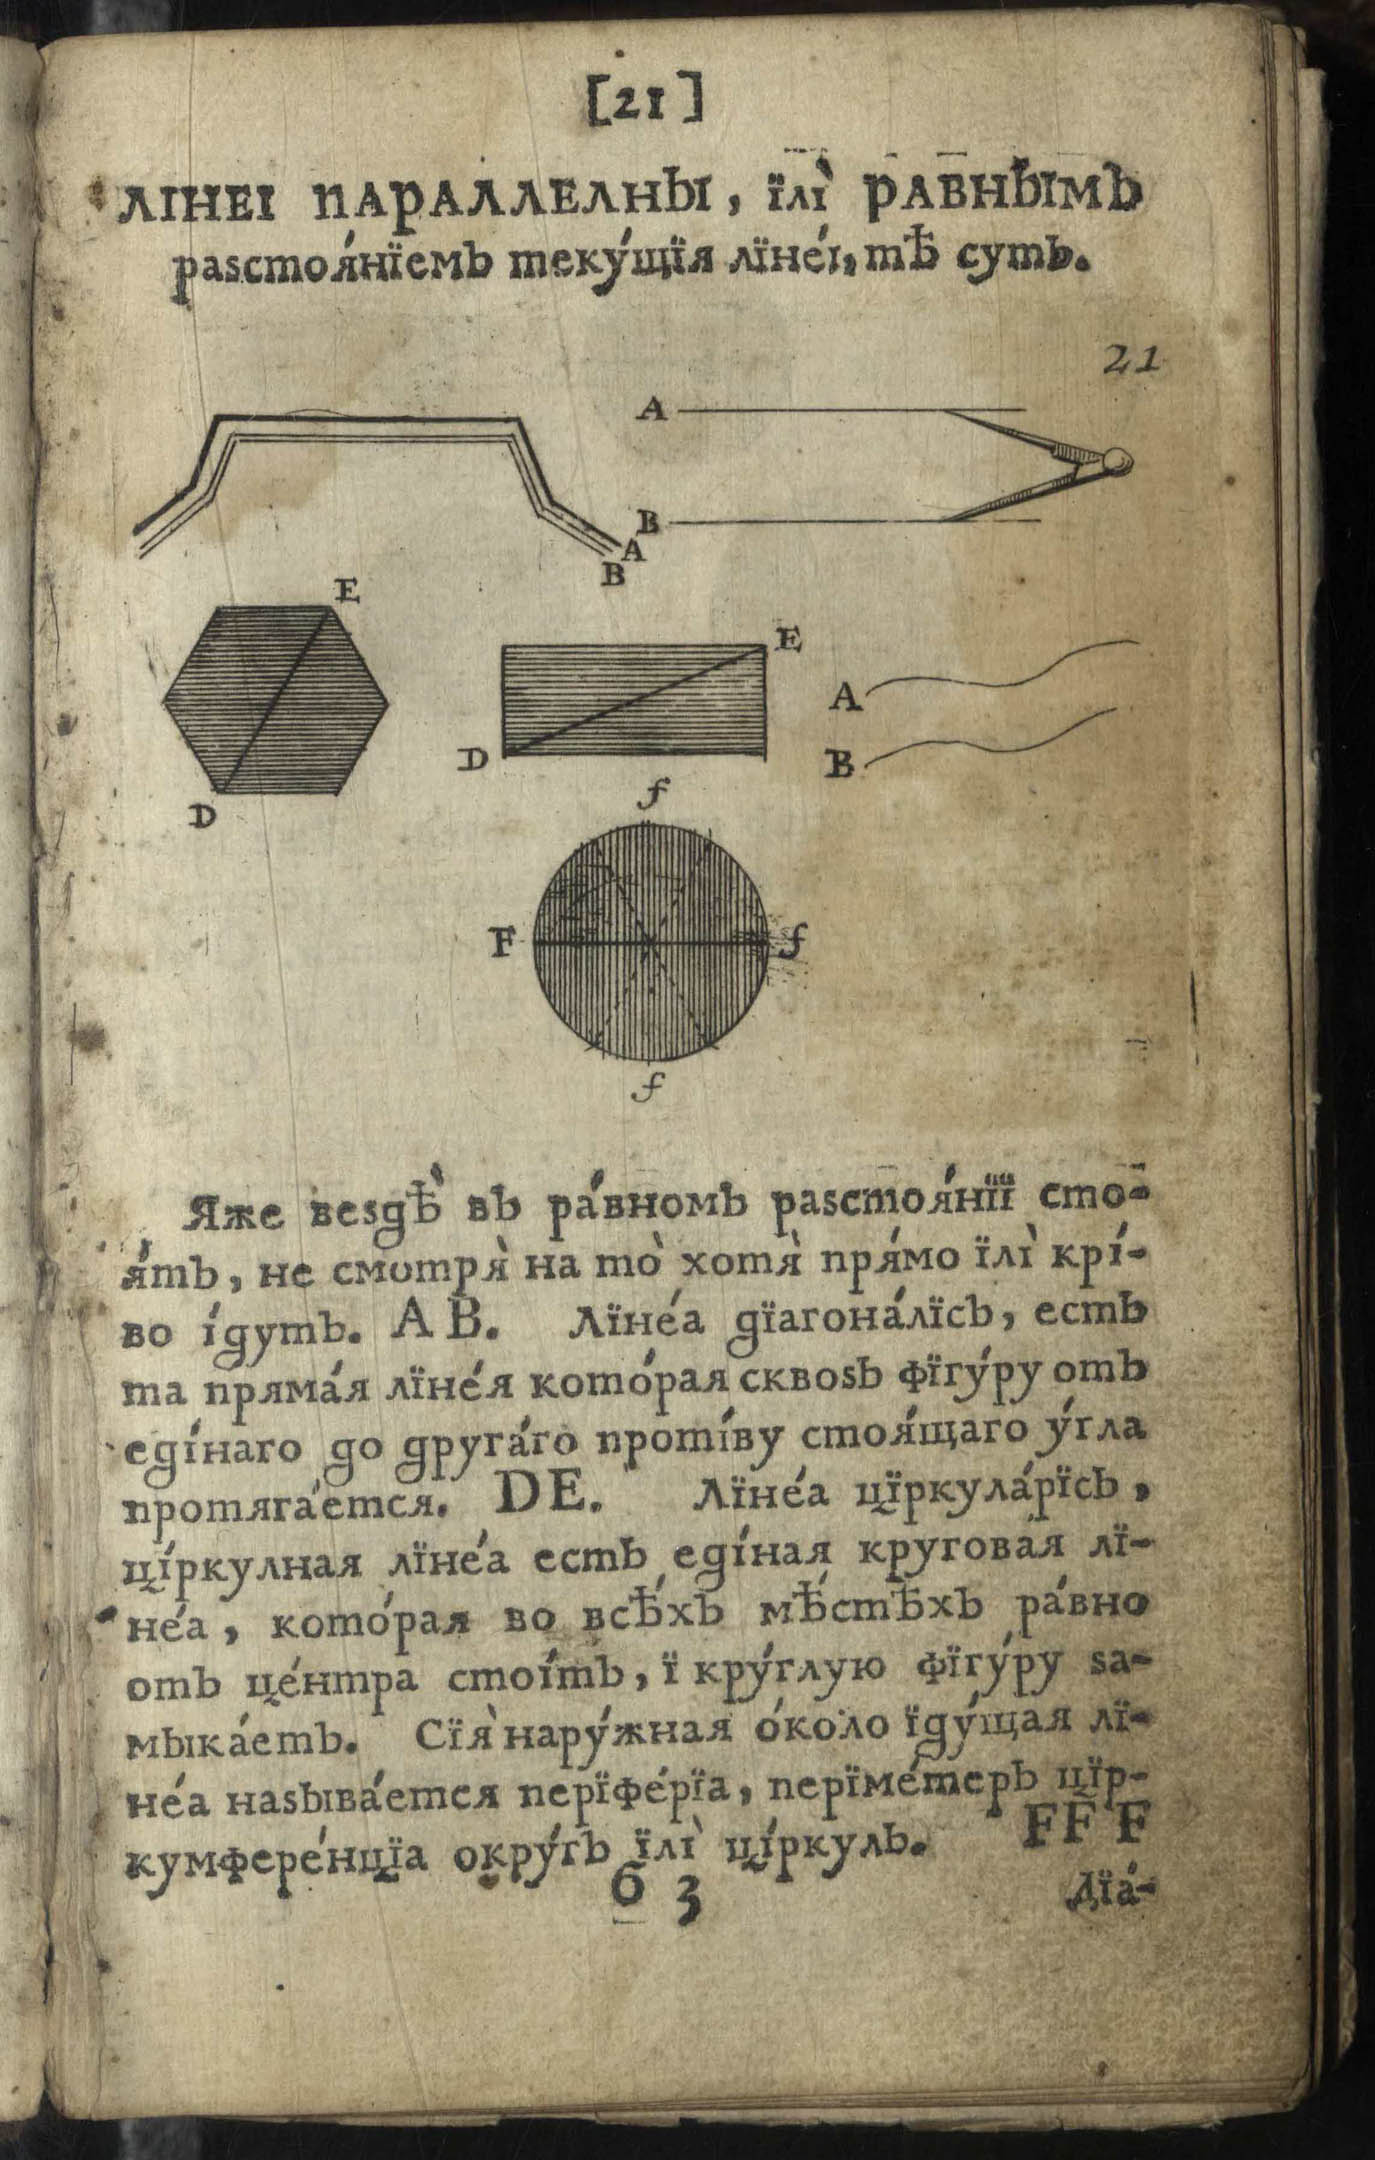 [21]
ЛІНЕІ ПАРАЛЛЕЛНЫ, їлі̀ РАВНЫ́МЪ
раѕстоя́нїемъ теку́щїя лїне́і, тѣ суть.
21
A
B
A
B
E
E
A
D
B
D
f
F
f
f
Яже веѕдѣ̀ въ ра́вномъ раѕстоя́нїї сто-
я́тъ, не смотря̀ на то̀ хотя̀ пря́мо їлі̀ крі́-
во і́дутъ. A B. Лїне́а дїагона́лїсъ, есть
та пряма́я лїне́я кото́рая сквоѕь фїгу́ру отъ
еді́наго до друга́го проті́ву стоя́щаго у́гла
протяга́ется. DE. Лїне́а цїркула́рїсъ,
ці́ркулная лїне́а есть еді́ная кругова́я лї-
не́а, кото́рая во всѣ́хъ мѣ́стѣхъ ра́вно
отъ це́нтра стои́тъ, ї кру́глую фїгу́ру ѕа-
мыка́етъ. Сїя̀ нару́жная о́коло їду́щая лї-
не́а наѕыва́ется перїфе́рїа, періме́теръ цїр-
кумфере́нцїа окру́гъ їлі̀ ці́ркуль. FF F
б 3
Дїа́-